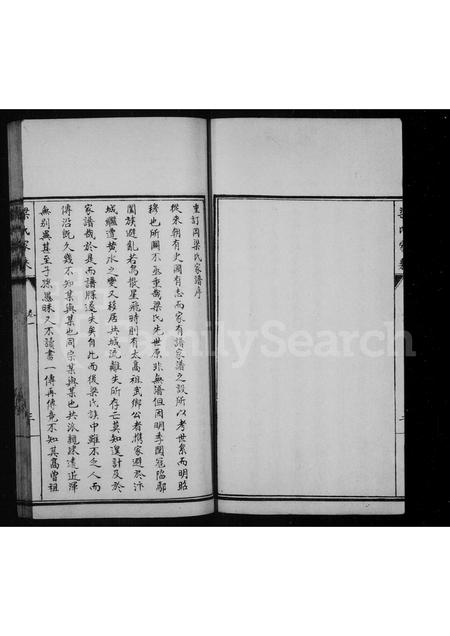 重訂岡梁氏家譜序
從來朝有史國有志而家有譜家譜之設所以考世系而明昭
穆也所關不丞重哉梁氏先世原非無譜但因明季闖冦陷鄢
闔族避亂若鳥散星飛時則有太高祖武鄉公者携家避於汴
城繼遭黃水之變又移居共城流離失所存亡莫知遑計及於
家譜哉於是而譜牒遂失矣自此而後梁氏族中雖不乏人而
傳沿既久幾不知某與某也同宗某與某也共派親疎遠近渾
無別異甚至子孫愚昧又不讀書一傳再傳竟不知其高曾祖
梁氏家
卷一
三
FamilySearch